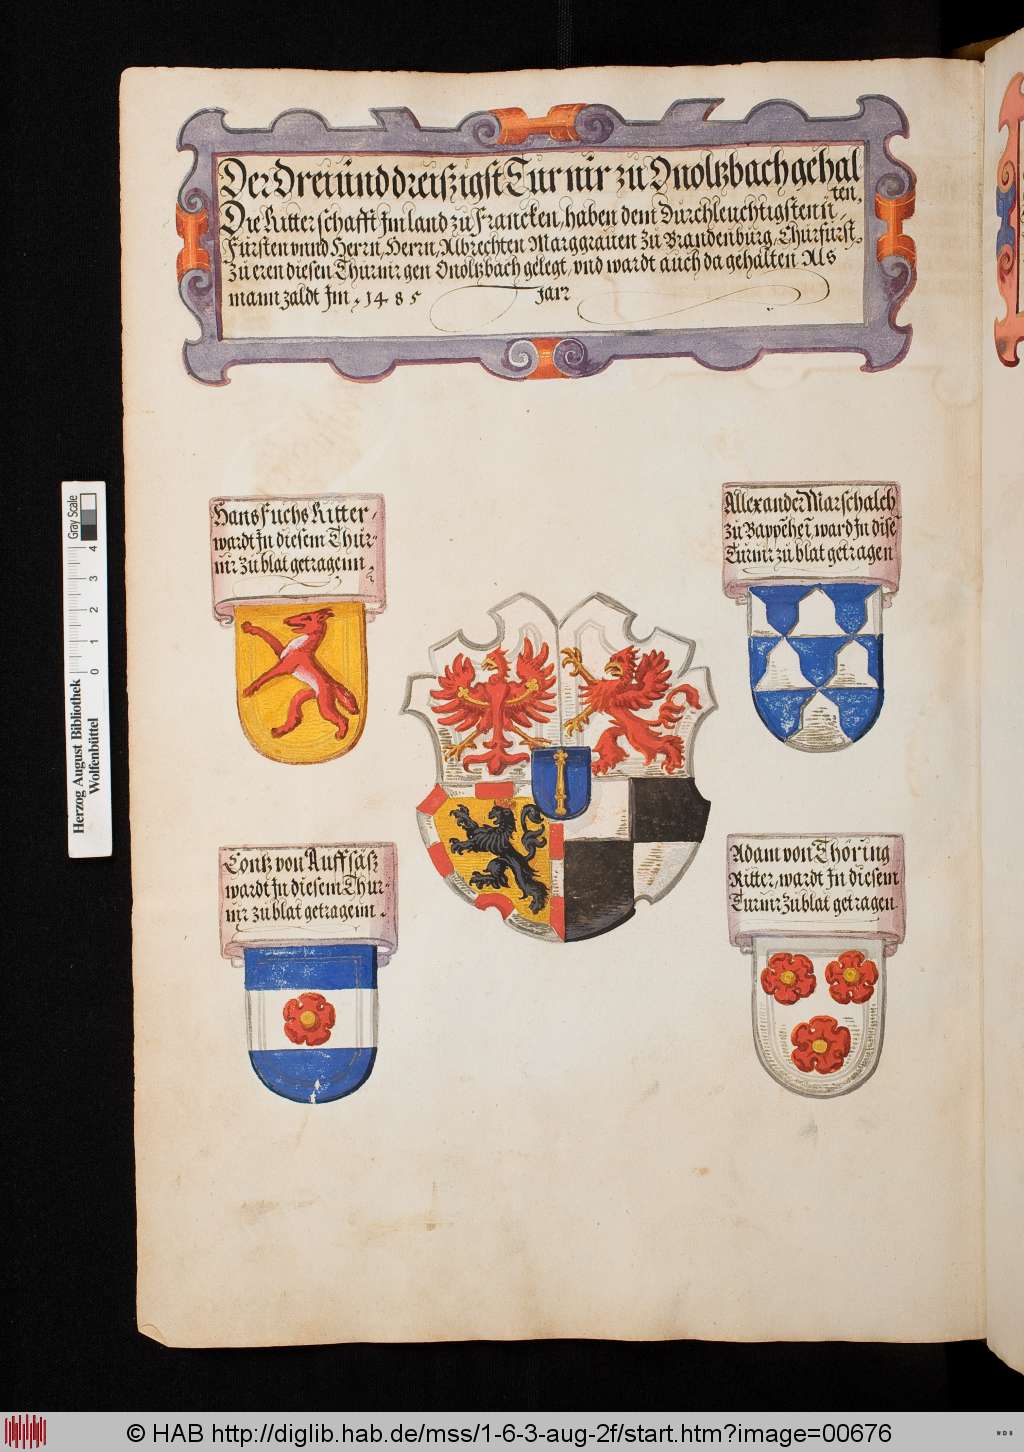 Der Dreiunddreiszigst Turnir zu Onoltzbach gehal
ten,
Die Ritterschafft Im land zu Francken, haben dem Durchleuchtigsten
Fürsten vnnd Herrn, Herrn, Albrechten Marggrauen Zu Brandenburg, Churfürst,
Zu eren diesen Thurnir gen Onoltzbach gelegt, vnd wardt auch da gehalten Als
mann zaldt Im, 1485 jar
Hans fuchs Ritter,
wardt In diesem Thur-
nir zu blat getragenn,
Allexander Marschalch
zu Bappēheī ward In dise
Turnir zu blat getragen
Contz von Auffsäsz
wardt In diesem Thur-
nir zu blat getragenn.
Adam von Thöring
Ritter, wardt In diesem
Turnir zu blat getragen
Herzog August Bibliothek
Wolfenbüttel
0 1 2 3 4
Gray Scale
© HAB http://diglib.hab.de/mss/1-6-3-aug-2f/start.htm?image=00676